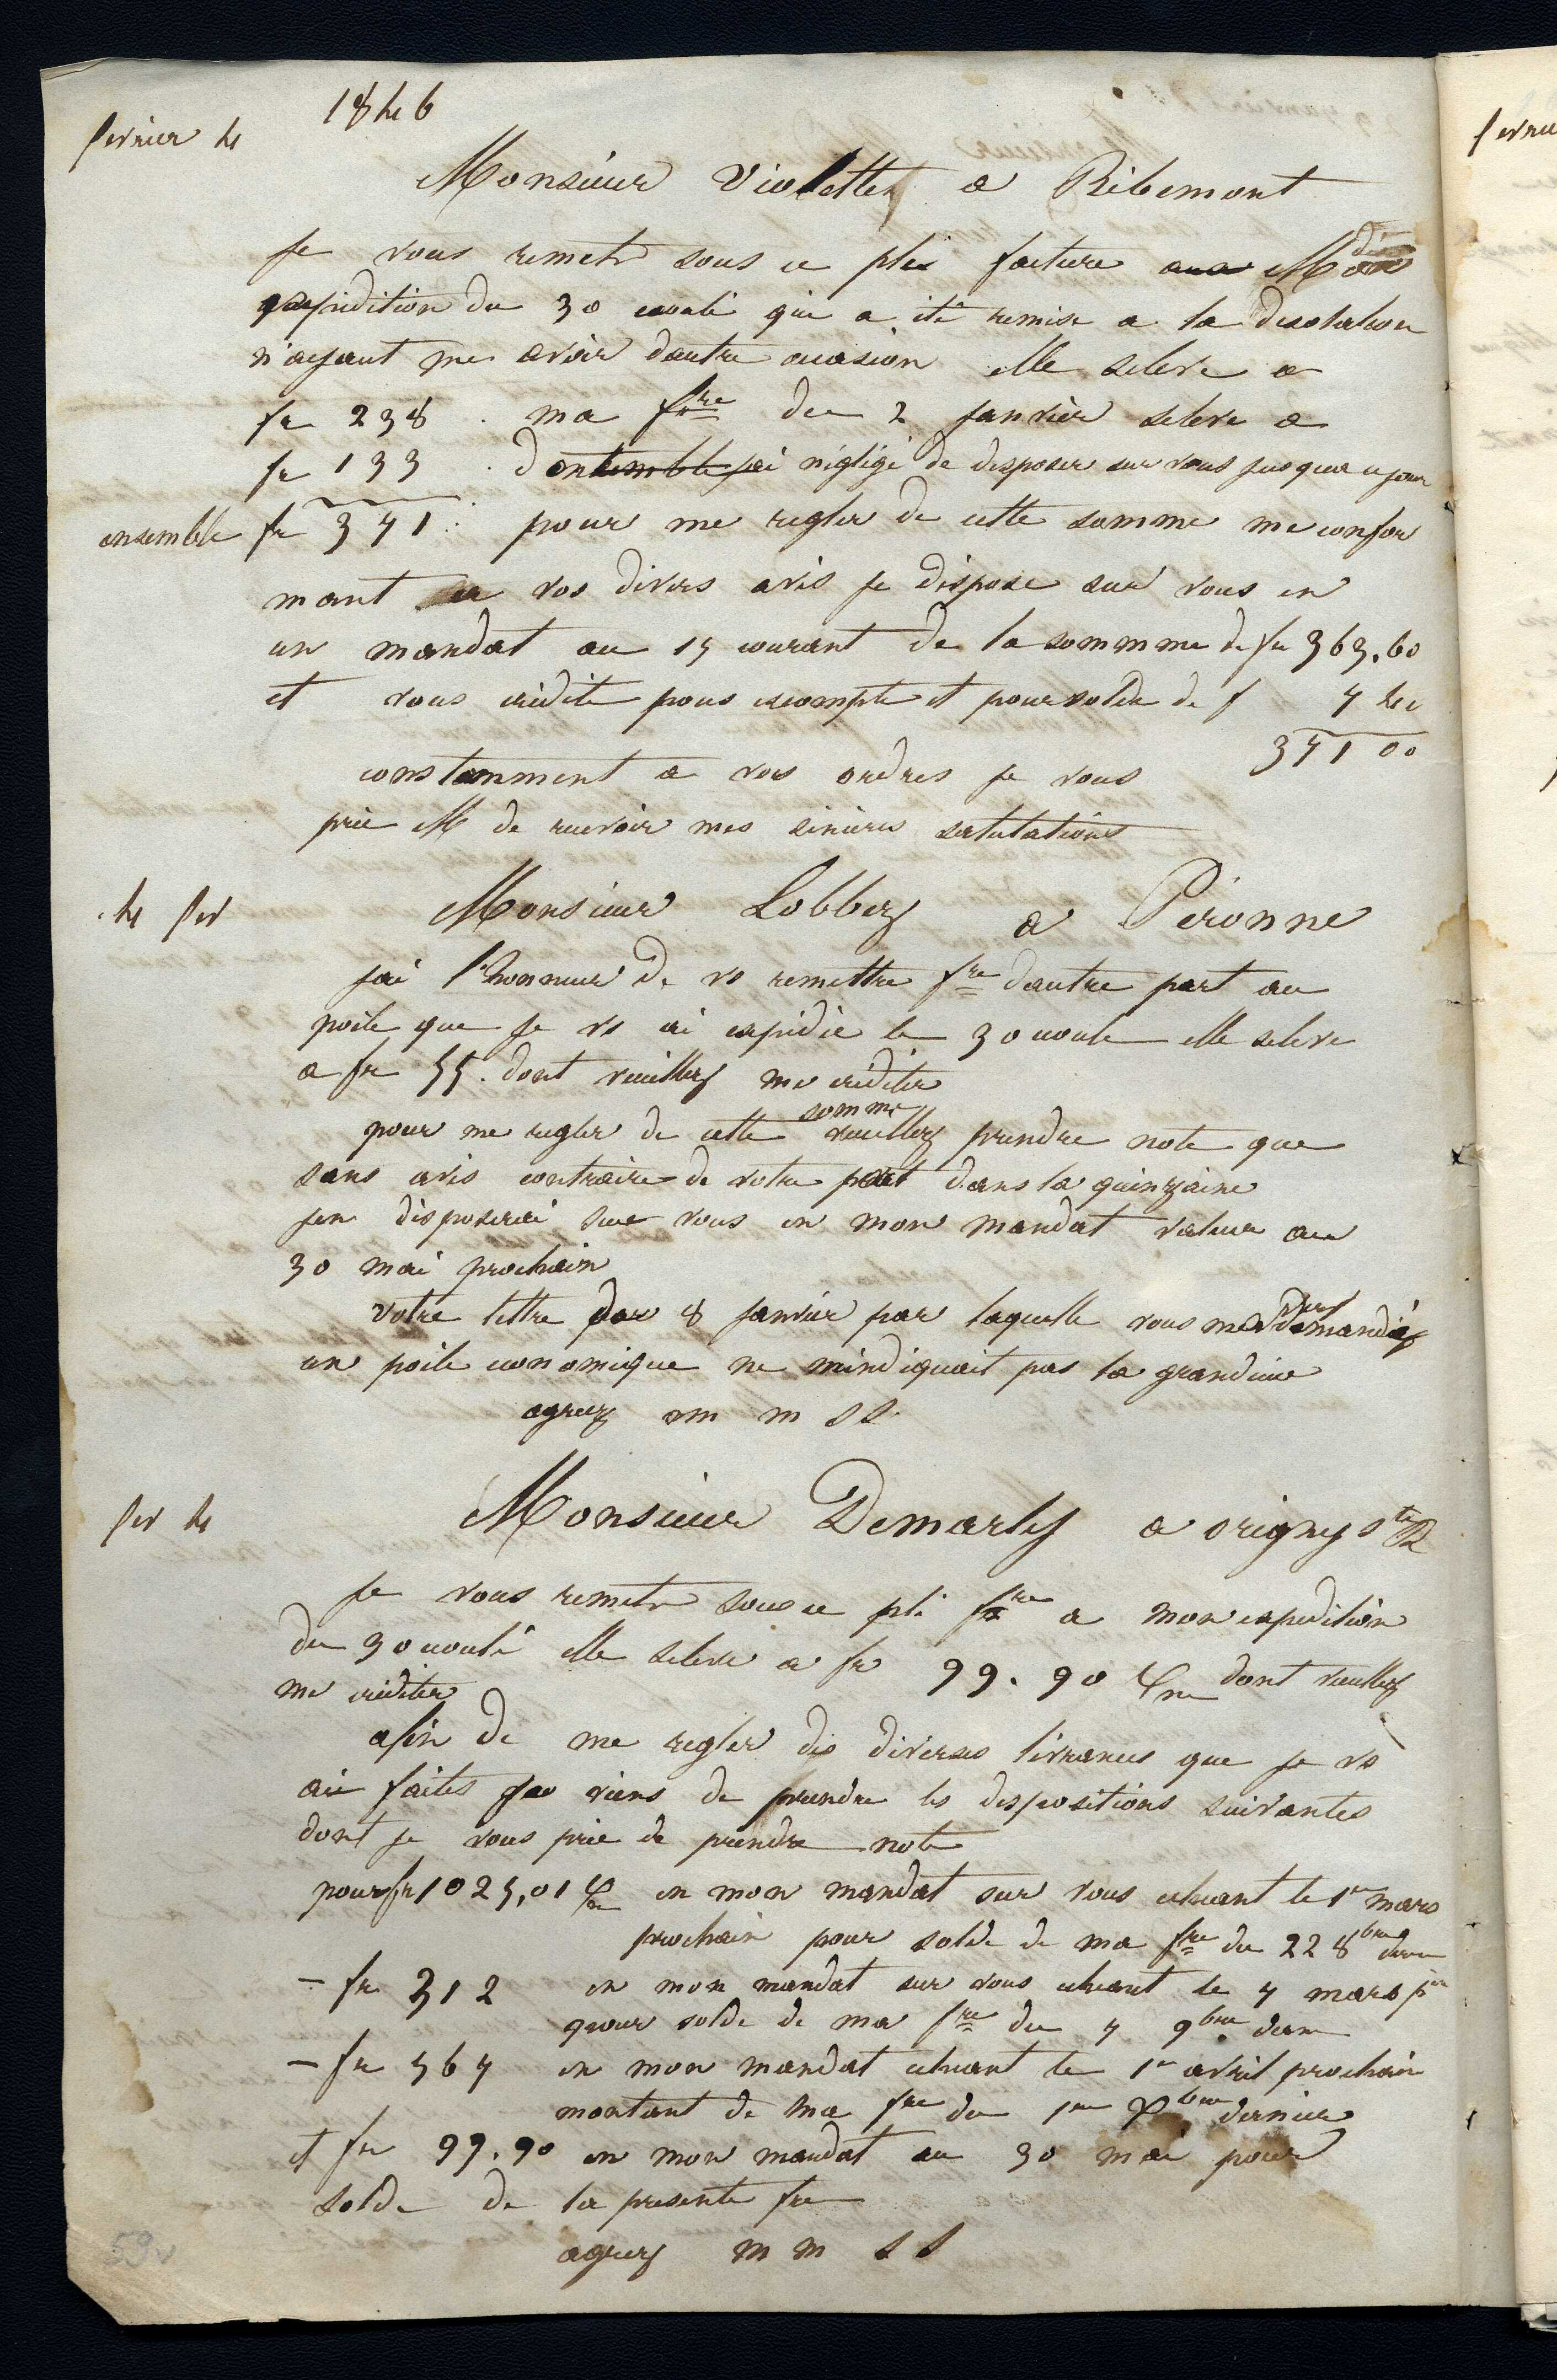 1846
fevrier 4
Monsieur Violette a Ribemont
je vous remets sous ce pli facture
expedition du 30 ecoulé qui a été remise a la
n'ayant me avoir dautre occasion elle seleve a
fr 238 . ma fre du 2 janvier seleve a
fr 133 . dont jai négligé de disposer sur vous jusqua ce jour
ensemble fr 371 : pour me regler de cette somme me confor
mant a vos divers avis je dispose sur vous en
un mandat au 15 courant de la sommme de fr 363.60
et vous crédite pour escompte et pour solde de f 7 40
371 00
constamment a vos ordres je vous
prie M de recevoir mes sinceres salutations
4 fev
Monsieur Lobbez a Péronne
jai l'honneur de vs remettre fre dautre part au
poile que je vs ai expédié le 30 ecoulé elle seleve
a fr 55. dont veuillez me créditer
pour me regler de cette somme veuillez prendre note que
sans avis contraire de votre part dans la quinzaine
jen disposerai sur vous en mon mandat valeur au
30 mai prochain
votre lettre du 8 janvier par laquelle vous me demandiez
un poile economique ne mindiquait pas la grandeur
agreez m m s s
fev 4
Monsieur Demarly a origny ste B
je vous remets sous ce pli fre a mon expedition
du 30 ecoulé elle seleve a fr 99.90 dont veuillez
me créditer
afin de me regler des diverses livrances que je vs
ai faites je viens de prendre les dispositions suivantes
dont je vous prie de prendre note
pour fr 1025,01 en mon mandat sur vous echeant le 1er mars
prochain pour solde de ma fre du 22 8bre dern
- fr 312 en mon mandat sur vous echeant le 7 mars pin
pour solde de ma fre du 7 9bre dern
- fr 567 en mon mandat echeant le 1er avril prochain
montant de ma fre du 1er Xbre dernier
et fr 99.90 en mon mandat au 30 mai pour
solde de la presente fre
agreez m m s s
59v